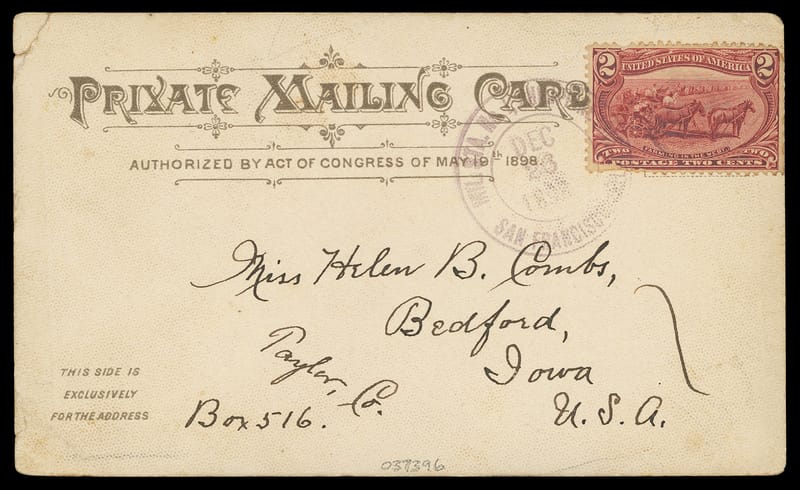 PRIVATE MAILING CARD
AUTHORIZED BY ACT OF CONGRESS OF MAY 19th 1898.
2 UNITED STATES OF AMERICA 2
FARMING IN THE WEST.
TWO TWO
POSTAGE TWO CENTS
DEC
SAN FRANCISCO
Miss Helen B. Combs,
Bedford,
Taylor, Co.
Iowa
Box 516.
U. S. A.
THIS SIDE IS
EXCLUSIVELY
FOR THE ADDRESS
037396